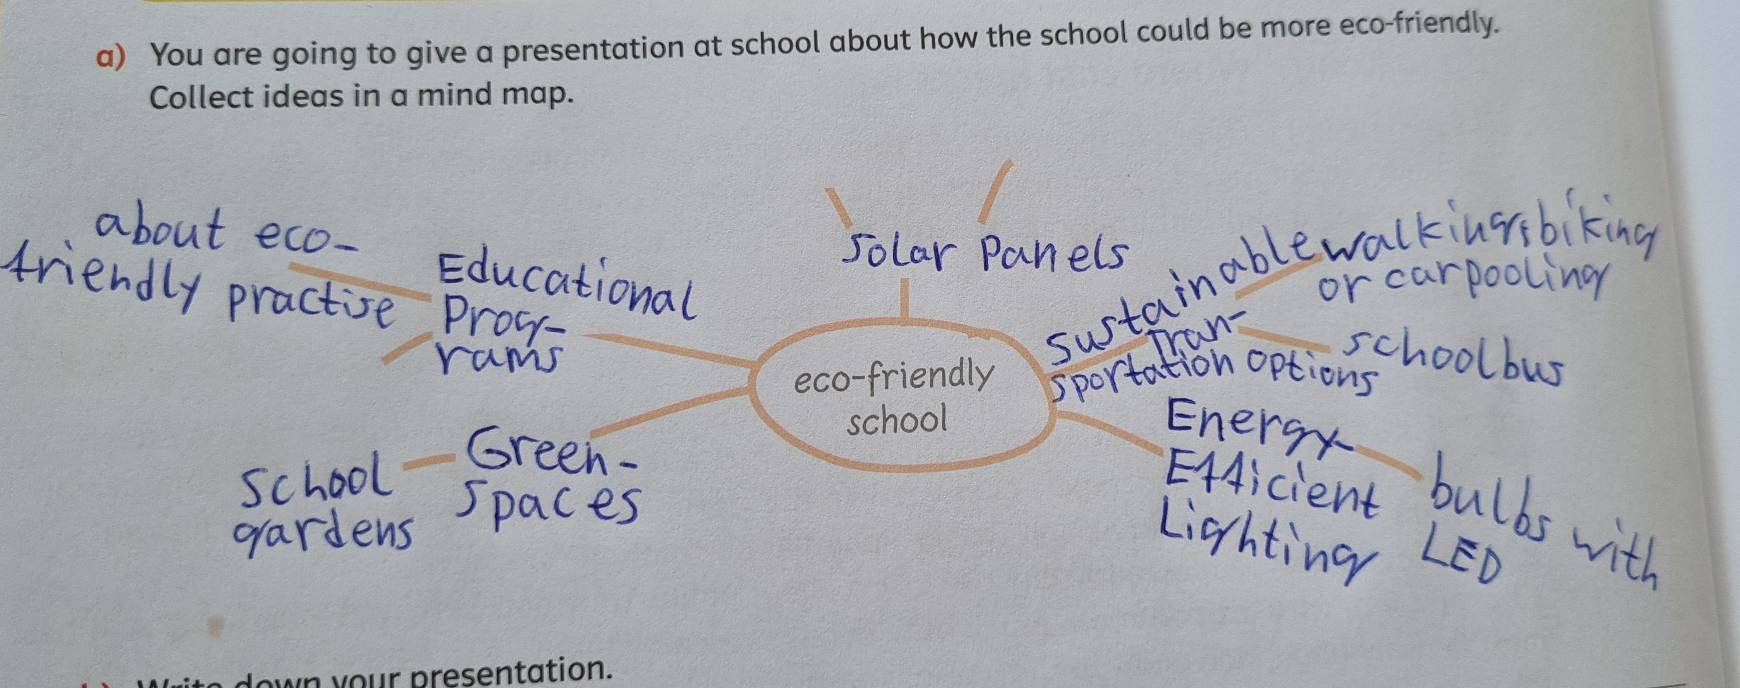 a) You are going to give a presentation at school about how the school could be more eco-friendly.
Collect ideas in a mind map.
about eco-
friendly practise
Educational
Prog-
rams
Solar Panels
sustainable
Tran-
sportation options
walking, biking
or carpooling
schoolbus
eco-friendly
school
school
gardens
Green-
spaces
Energy
Efficient
Lighting
bulbs with
LED
Write down your presentation.